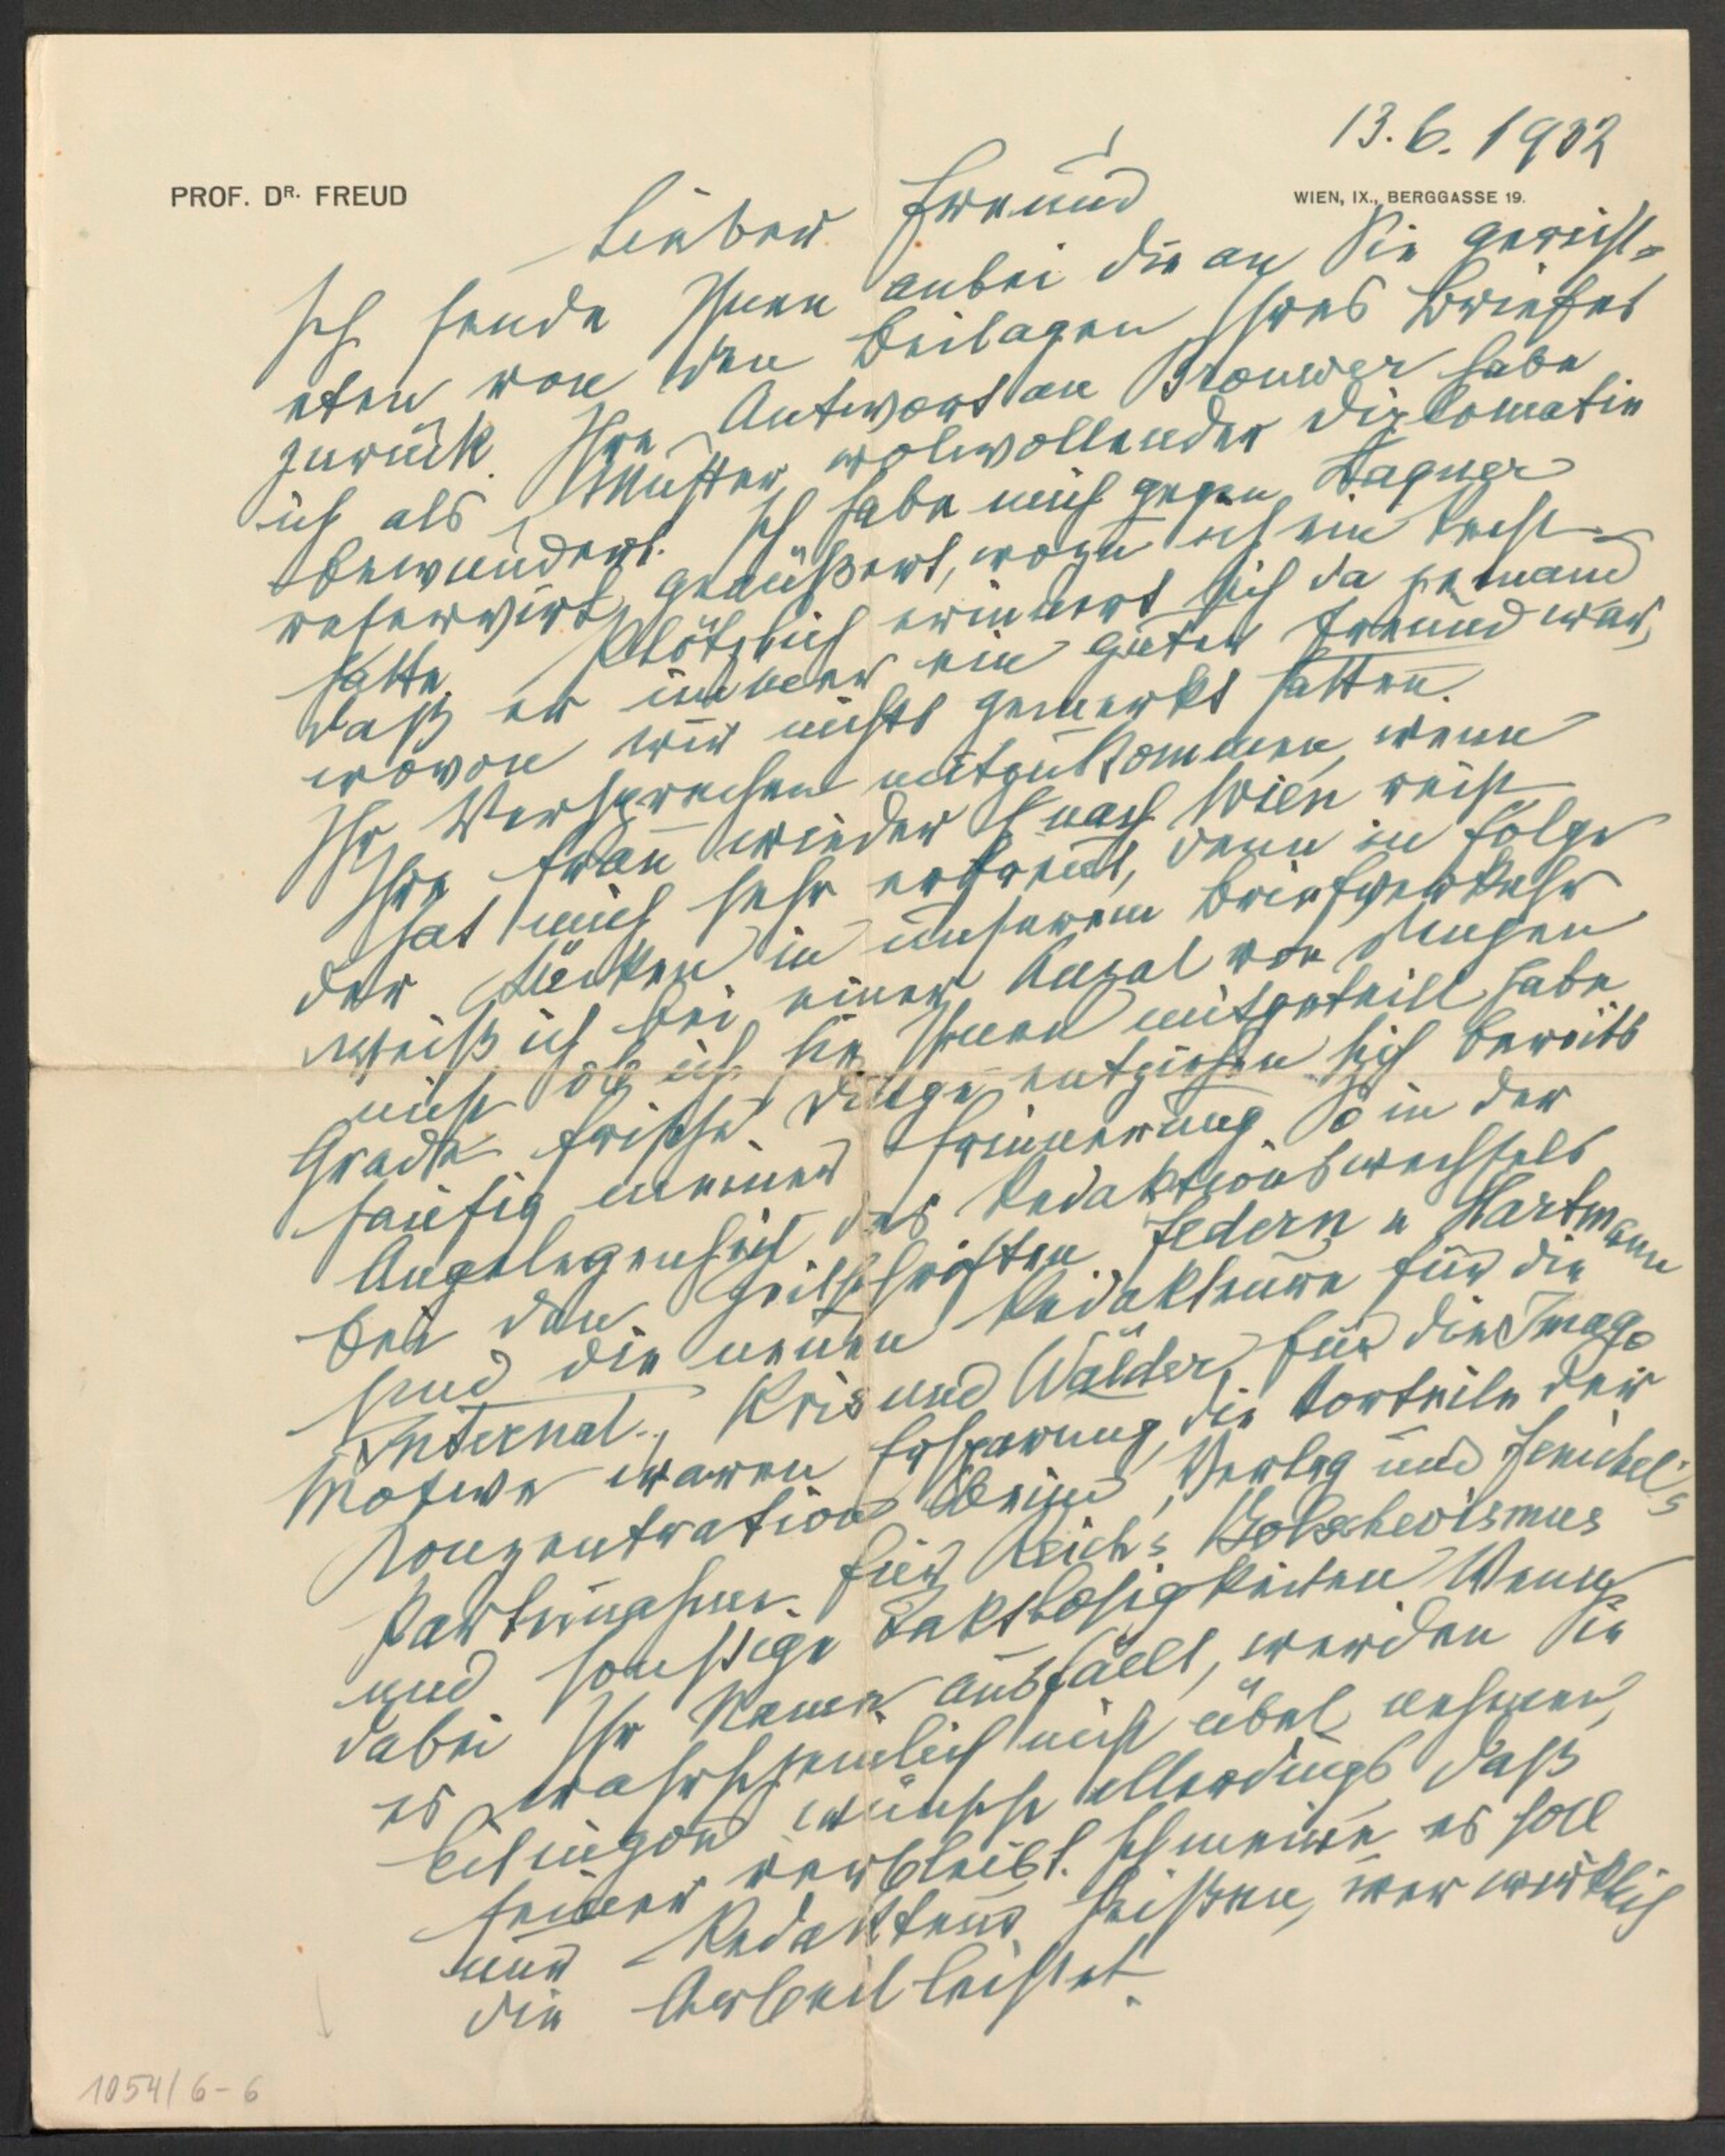 13.6.1932
PROF. DR. FREUD
WIEN, IX., BERGGASSE 19.
Lieber Freund
Ich sende Ihnen anbei die an Sie gericht=
eten von den Beilagen Ihres Briefes
zurück. Ihre Antwort an Brouwer habe
ich als Muster wolwollender Diplomatie
bewundert. Ich habe mich gegen
reservirt geäußert, wozu ich ein Recht
hatte. Plötzlich erinnert sich da jemand
daß er immer ein guter Freund war,
wovon wir nichts gemerkt hatten.
Ihr Versprechen mitzukommen, wenn
Ihre Frau wieder nach Wien reist
hat mich sehr erfreut, denn in Folge
der Lücken in unserem Briefverkehr
weiß ich bei einer Anzal von Dingen
nicht ob ich sie Ihnen mitgeteilt habe
Grade frische Dinge entziehen sich bereits
häufig meiner Erinnerung. So in der
Angelegenheit des Redaktionswechsels
bei den Zeitschriften. Federn u Hartmann
sind die neuen Redakteure für die
Internat., Kris und Wälder für die Imago
Motive waren Ersparung, die Vorteile der
Konzentration beim Verlag und Fenichel's
Parteinahme für Reichs Bolschevismus
und sonstige Taktlosigkeiten Wenn
dabei Ihr Name ausfällt, werden Sie
es wahrscheinlich nicht übel nehmen,
Eitingon wünscht allerdings daß
seiner verbleibt. Ich meine es soll
nur Redakteur heißen, wer wirklich
die Arbeit leistet.
1054/6-6